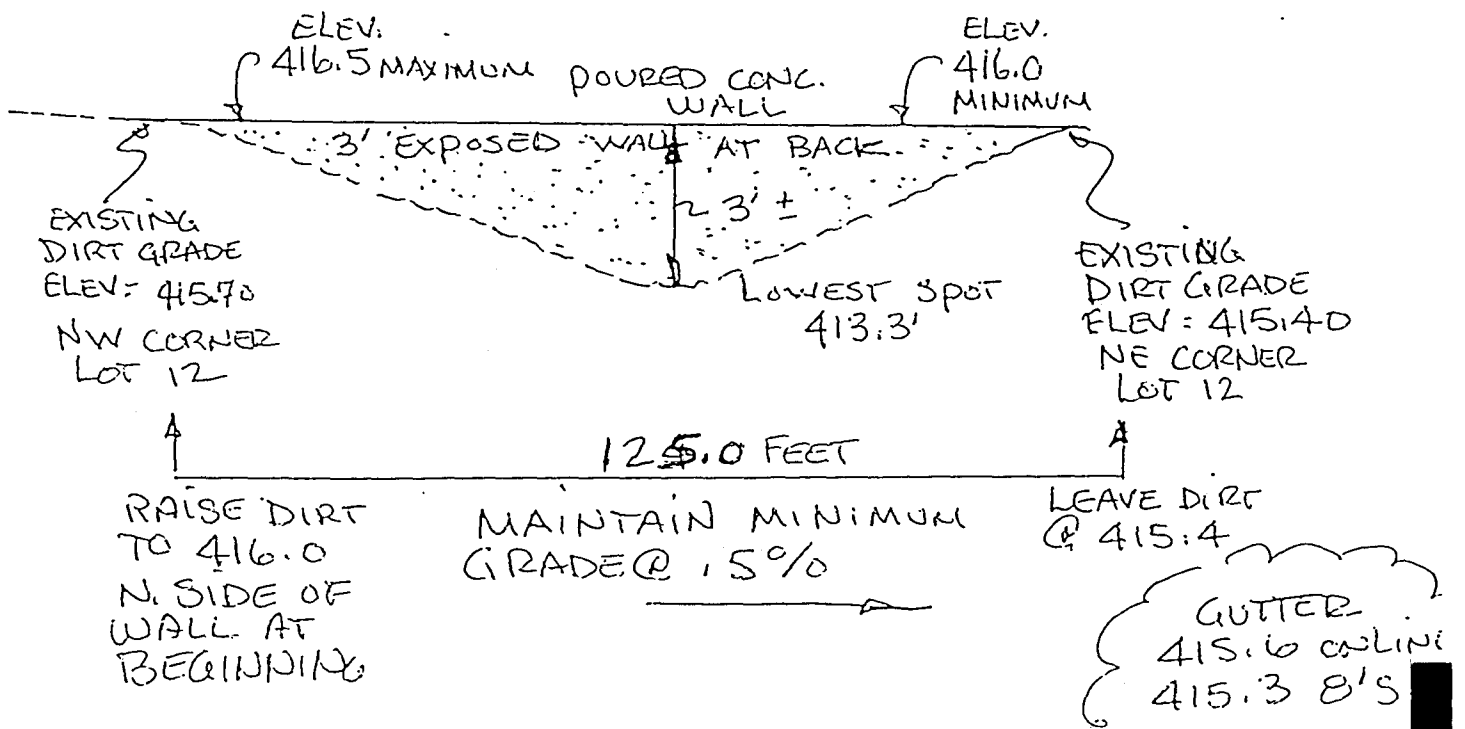 ELEV:
416.5 MAXIMUM
POURED CONC.
WALL
ELEV.
416.0
MINIMUM
3' EXPOSED WALL AT BACK.
3' ±
EXISTING
DIRT GRADE
ELEV= 415.70
NW CORNER
LOT 12
LOWEST SPOT
413.3'
EXISTING
DIRT GRADE
ELEV = 415.40
NE CORNER
LOT 12
125.0 FEET
RAISE DIRT
TO 416.0
N. SIDE OF
WALL AT
BEGINNING
MAINTAIN MINIMUM
GRADE @ .5%
LEAVE DIRT
@ 415.4
GUTTER
415.6 ONLINE
415.3 8'S